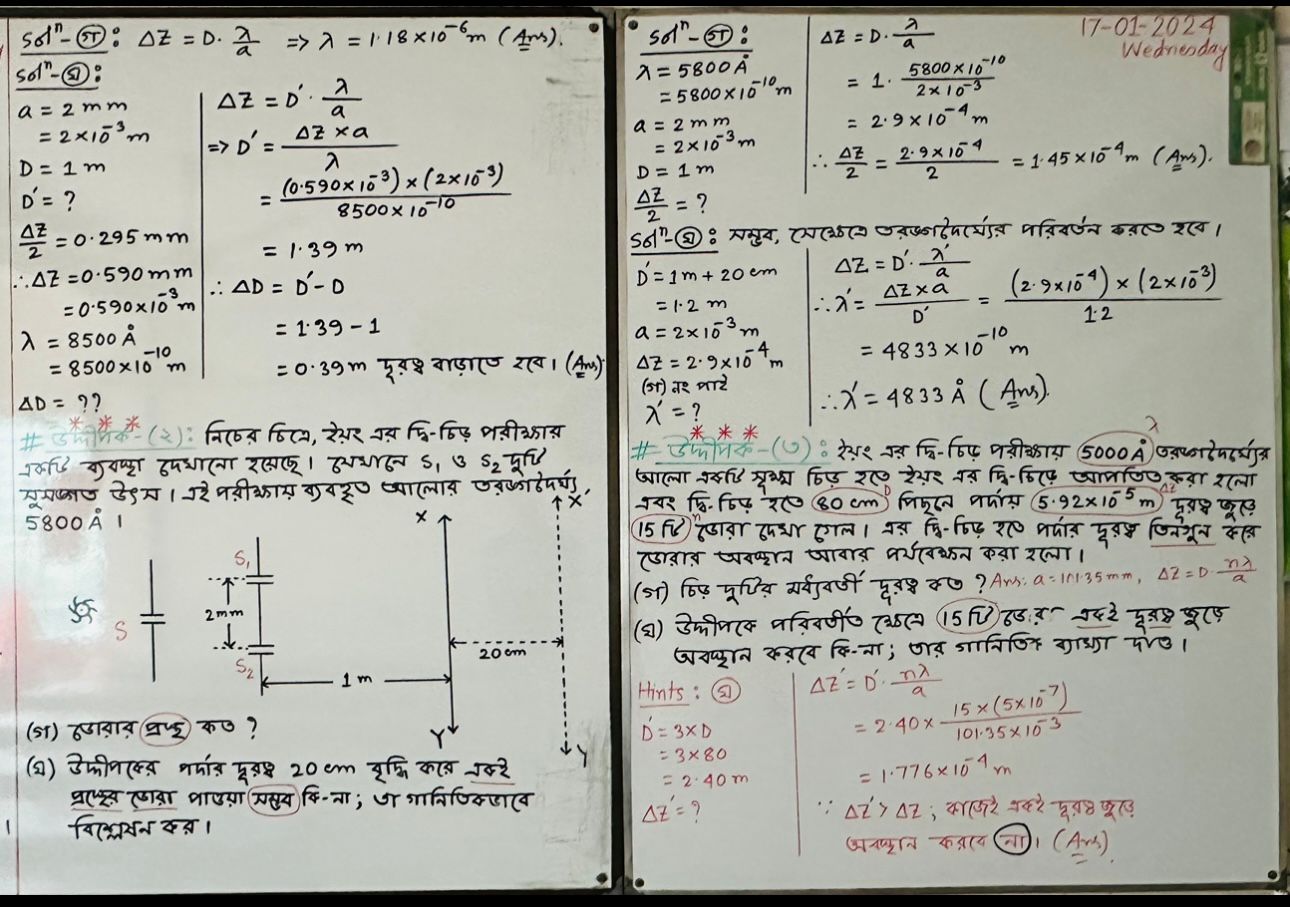 Solⁿ-(গ): ΔZ = D·λ/a => λ = 1·18×10⁻⁶m (Ans).
Solⁿ-(ঘ):
a = 2 mm
= 2×10⁻³m
D = 1 m
D′ = ?
ΔZ/2 = 0·295mm
∴ΔZ = 0·590mm
= 0·590×10⁻³m
λ = 8500 Å
= 8500×10⁻¹⁰ m
ΔD = ??
ΔZ = D′·λ/a
=> D′ = ΔZ×a/λ
= (0·590×10⁻³)×(2×10⁻³)/8500×10⁻¹⁰
= 1·39 m
∴ ΔD = D′-D
= 1·39 - 1
= 0·39m দূরত্ব বাড়াতে হবে। (Ans)
* * *
# উদ্দীপক-(২): নিচের চিত্রে, ইয়ং এর দ্বি-চিড় পরীক্ষার
একটি ব্যবস্থা দেখানো হয়েছে। যেখানে S₁ ও S₂ দুটি
সুসঙ্গত উৎস। এই পরীক্ষায় ব্যবহৃত আলোর তরঙ্গদৈর্ঘ্য
5800 Å।
S
S₁
2mm
S₂
1 m
X
Y
20cm
X′
Y′
(গ) ডোরার প্রস্থ কত?
(ঘ) উদ্দীপকের পর্দার দূরত্ব 20 cm বৃদ্ধি করে একই
প্রস্থের ডোরা পাওয়া সম্ভব কি-না; তা গানিতিকভাবে
বিশ্লেষন কর।
17-01-2024
Wednesday
Solⁿ-(গ):
λ = 5800 Å
= 5800×10⁻¹⁰m
a = 2 mm
= 2×10⁻³m
D = 1 m
ΔZ/2 = ?
ΔZ = D·λ/a
= 1· 5800×10⁻¹⁰/2×10⁻³
= 2·9×10⁻⁴m
∴ ΔZ/2 = 2·9×10⁻⁴/2 = 1·45×10⁻⁴m (Ans).
Solⁿ-(ঘ): সম্ভব, সেক্ষেত্রে তরঙ্গদৈর্ঘ্যের পরিবর্তন করতে হবে।
D′ = 1m + 20 cm
= 1·2 m
a = 2×10⁻³m
ΔZ = 2·9×10⁻⁴m
(গ) নং পাই
λ′ = ?
ΔZ = D′·λ′/a
∴ λ′ = ΔZ×a/D′ = (2·9×10⁻⁴)×(2×10⁻³)/1·2
= 4833×10⁻¹⁰ m
∴ λ′ = 4833 Å (Ans).
* * *
λ
# উদ্দীপক-(৩): ইয়ং এর দ্বি-চিড় পরীক্ষায় 5000Å তরঙ্গদৈর্ঘ্যের
আলো একটি সূক্ষ্ম চিড় হতে ইয়ং এর দ্বি-চিড়ে আপতিত করা হলো
এবং দ্বি-চিড় হতে 80 cm D পিছনে পর্দায় 5·92×10⁻⁵ m ΔZ দূরত্ব জুড়ে
15 টি n ডোরা দেখা গেল। এর দ্বি-চিড় হতে পর্দার দূরত্ব তিনগুন করে
ডোরার অবস্থান আবার পর্যবেক্ষন করা হলো।
(গ) চিড় দুটির মধ্যবর্তী দূরত্ব কত? Ans: a=101·35mm, ΔZ=D·nλ/a
(ঘ) উদ্দীপকে পরিবর্তীত ক্ষেত্রে 15 টি ডোরা একই দূরত্ব জুড়ে
অবস্থান করবে কি-না; তার গানিতিক ব্যাখ্যা দাও।
Hints: (ঘ)
D′ = 3×D
= 3×80
= 2·40 m
ΔZ′ = ?
ΔZ′ = D′·nλ/a
= 2·40× 15×(5×10⁻⁷)/101·35×10⁻³
= 1·776×10⁻⁴ m
∵ ΔZ′ > ΔZ; কাজেই একই দূরত্ব জুড়ে
অবস্থান করবে না। (Ans).